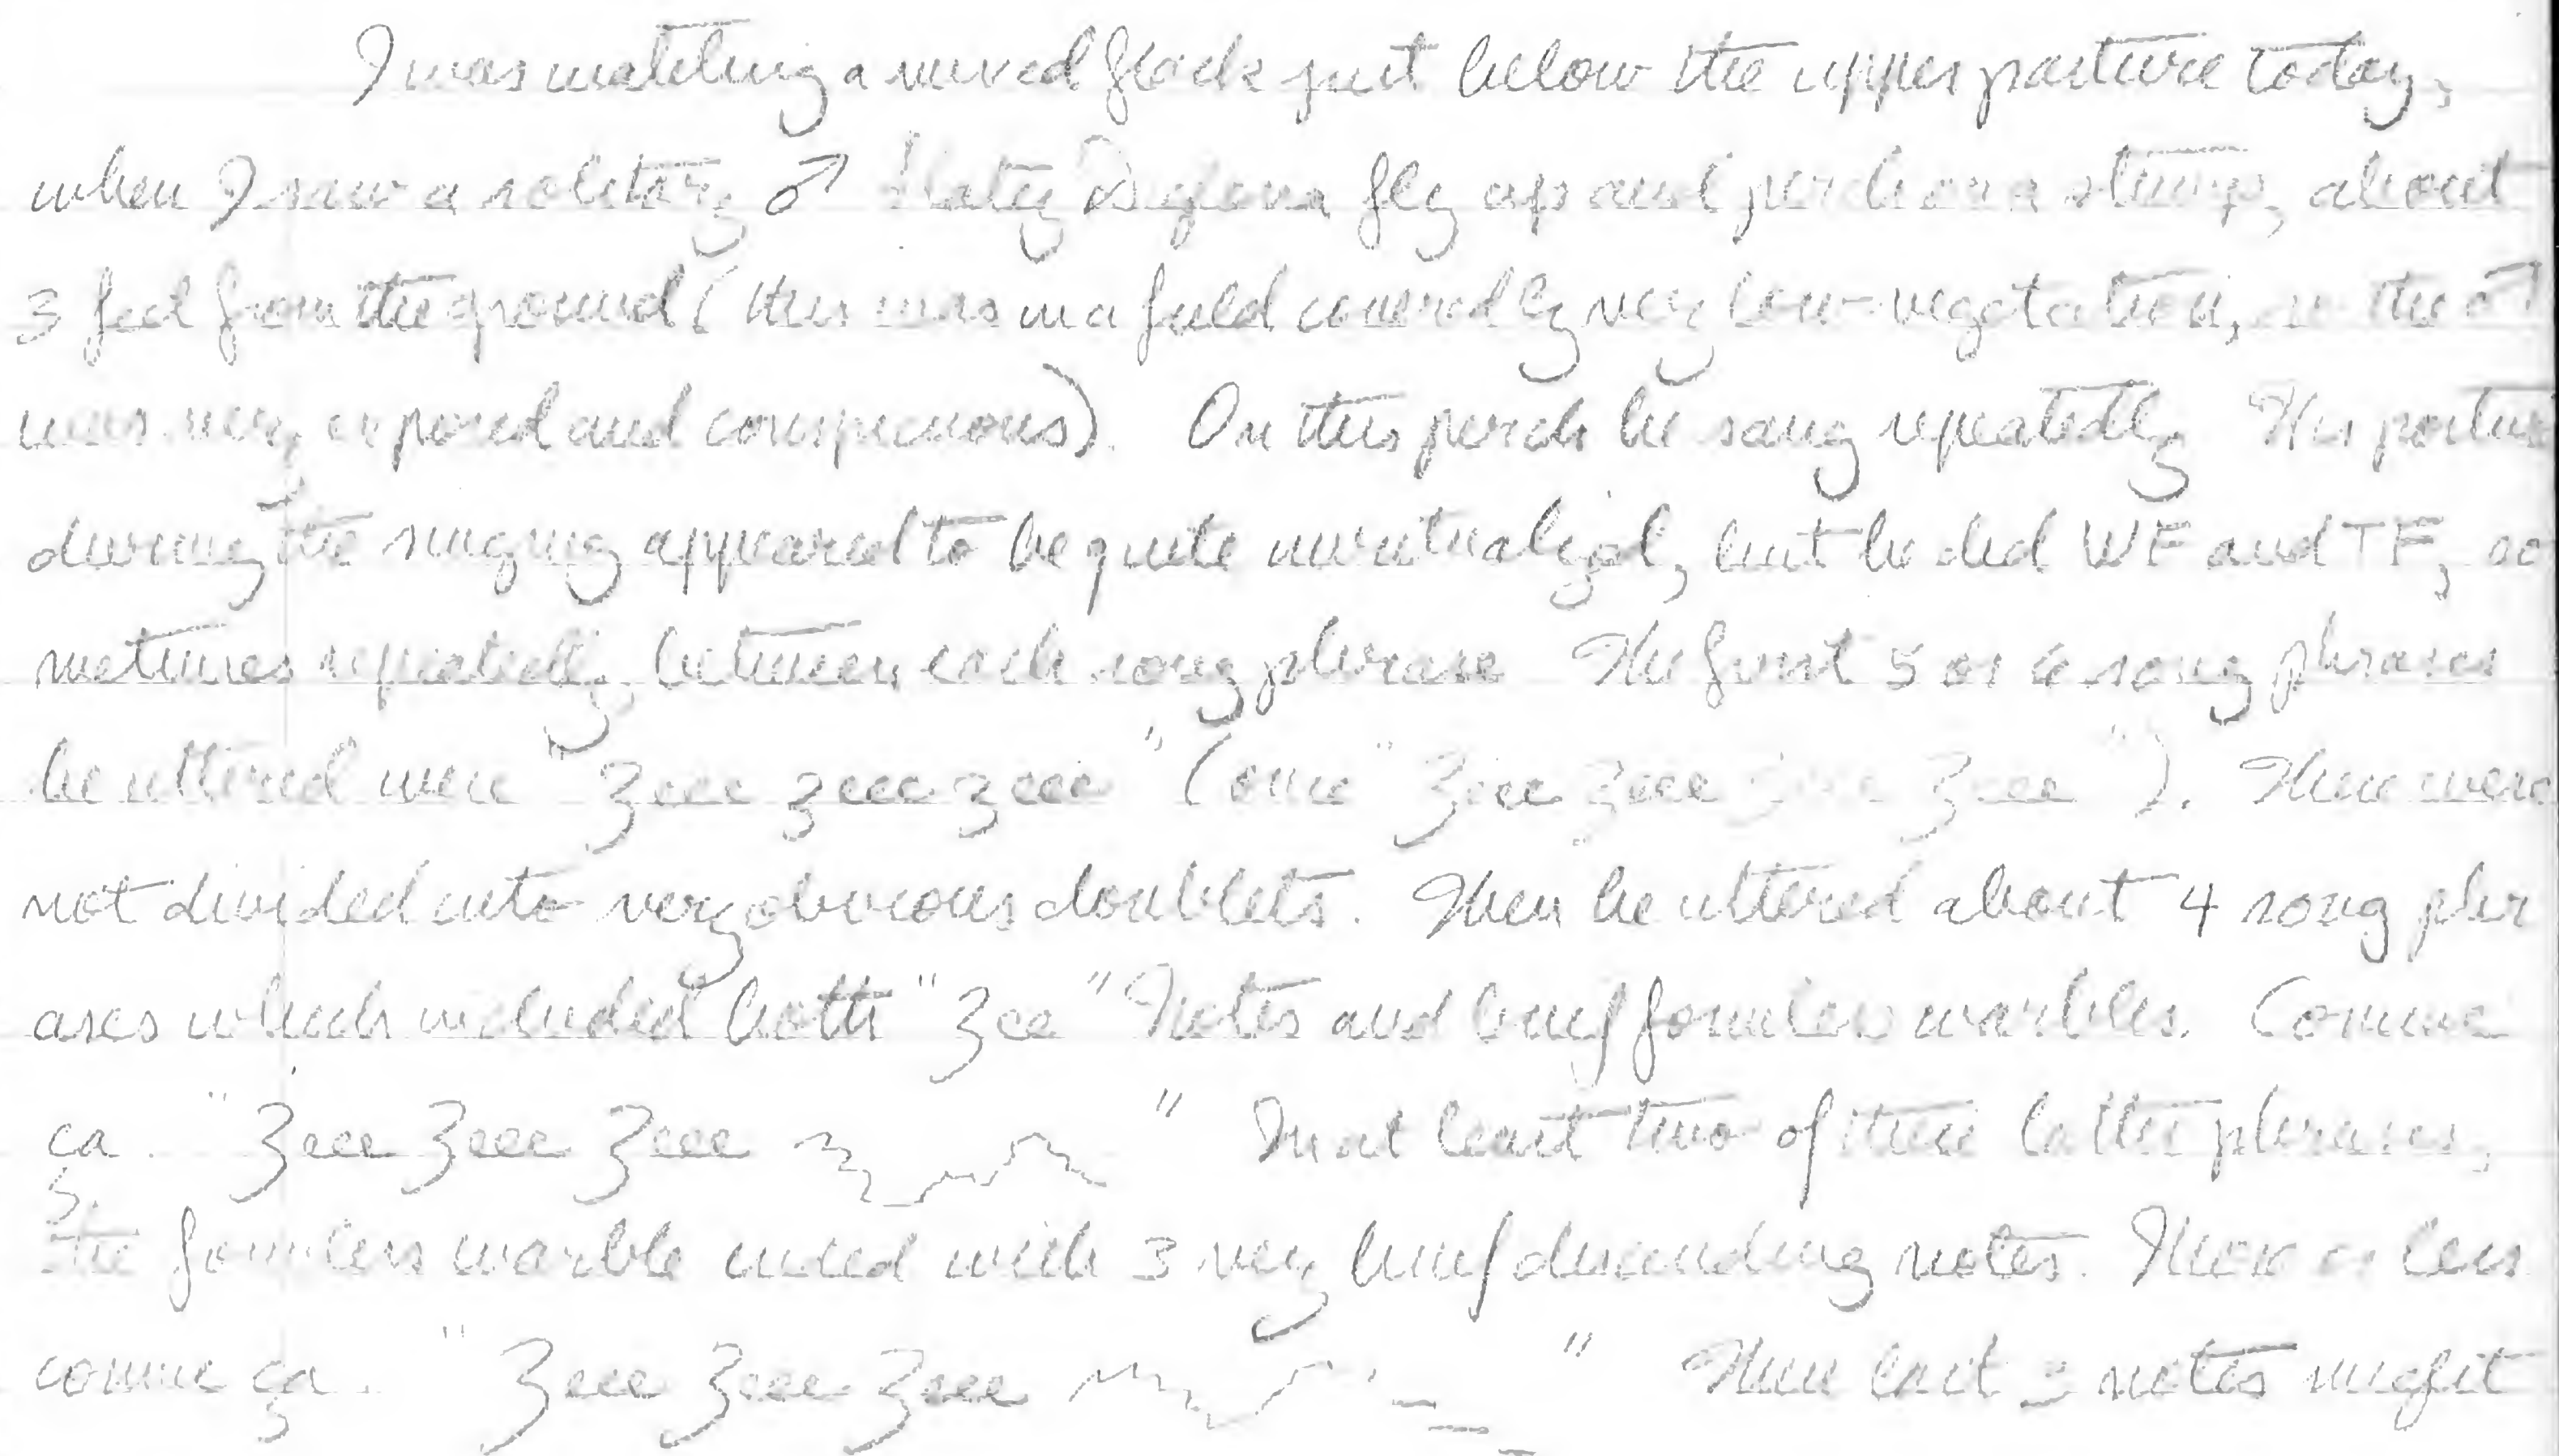 I was watching a mixed flock just below the upper pasture today,
when I saw a solitary ♂ Slaty Diglossa fly up and perch on a stump, about
3 feet from the ground (this was in a field covered by very low vegetation, so the ♂
was very exposed and conspicuous). On this perch he sang repeatedly. His postur
during the singing appeared to be quite unritualized, but he did WF and TF, so
metimes repeatedly, between each song phrase. The first 5 or 6 song phrases
he uttered were "Zeee zeee zeee" (once "Zeee Zeee Zeee Zeee"). These were
not divided into very obvious doublets. Then he uttered about 4 song phr
ases which included both "Zee" Notes and brief formless warbles. Comme
ça. "Zeee Zeee Zeee " In at least two of these latter phrases,
the formless warble ended with 3 very brief descending notes. More or less
comme ça. "Zeee Zeee Zeee " These last 3 notes might